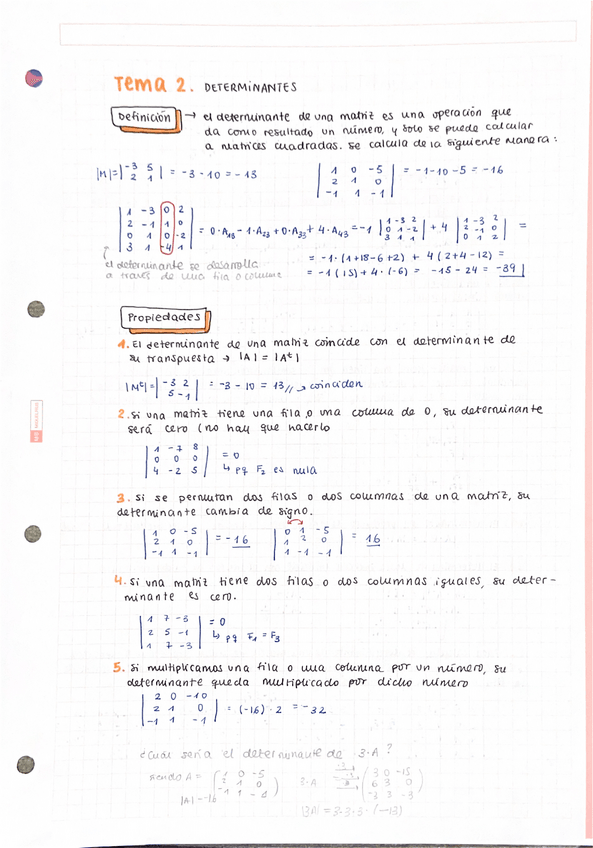 Tema 2. DETERMINANTES
Definición → el determinante de una matriz es una operación que
da como resultado un número, y solo se puede calcular
a matrices cuadradas. se calcula de la siguiente manera:
|M|= |-3 5| = -3-10 = -13    |1 0 -5| = -1-10-5 = -16
|2 1|    |2 1 0|
|-1 1 -1|
|1 -3 0 2|
|2 -1 1 0| = 0·A₁₃-1·A₂₃+0·A₃₃+4·A₄₃ = -1 |1 -3 2| + 4 |1 -3 2| =
|0 1 0 -2|    |0 1 -2|    |2 -1 0|
|3 1 -4 1|    |3 1 1|    |0 1 2|
= -1·(1+18-6+2) + 4(2+4-12) =
= -1(15)+4·(-6) = -15-24 = -39
el determinante se desarrolla
a través de una fila o columna
Propiedades
1. El determinante de una matriz coincide con el determinante de
su transpuesta → |A| = |Aᵗ|
|Mᵗ|= |-3 2| = -3-10 = 13 // → coinciden
|5 -1|
2. si una matriz tiene una fila o una columna de 0, su determinante
será cero (no hay que hacerlo
|1 -7 8|
|0 0 0| = 0
|4 -2 5| ↳ pq F₂ es nula
3. Si se permutan dos filas o dos columnas de una matriz, su
determinante cambia de signo.
|1 0 -5|    |0 1 -5|
|2 1 0| = -16    |1 2 0| = 16
|-1 1 -1|    |1 -1 -1|
4. Si una matriz tiene dos filas o dos columnas iguales, su deter-
minante es cero.
|1 7 -3| = 0
|2 5 -1| ↳ pq F₁ = F₃
|1 7 -3|
5. Si multiplicamos una fila o una columna por un número, su
determinante queda multiplicado por dicho número
|2 0 -10|
|2 1 0| = (-16)·2 = -32
|-1 1 -1|
¿Cuál sería el determinante de 3·A?
siendo A = (1 0 -5)    3·A    (3 0 -15)
(2 1 0)    (6 3 0)
(-1 1 -1)    (-3 3 -3)
|A| = -16    |3A| = 3·3·3·(-13)